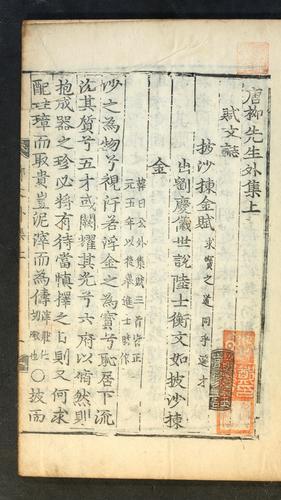 唐柳先生外集上
賦文誌
披沙揀金賦 求寶之道同乎選才
出劉慶義世說陸士衡文如披沙揀
金 韓曰公外集賦三首皆正
元五年以後舉進士時作
沙之為物兮視汙若浮金之為寶兮恥居下流
沈其質兮五才或闕耀其光兮六府以脩然則
抱成器之珍必將有待當慎擇之日則又何求
配珪璋而取貴豈泥滓而為儔 ○披而